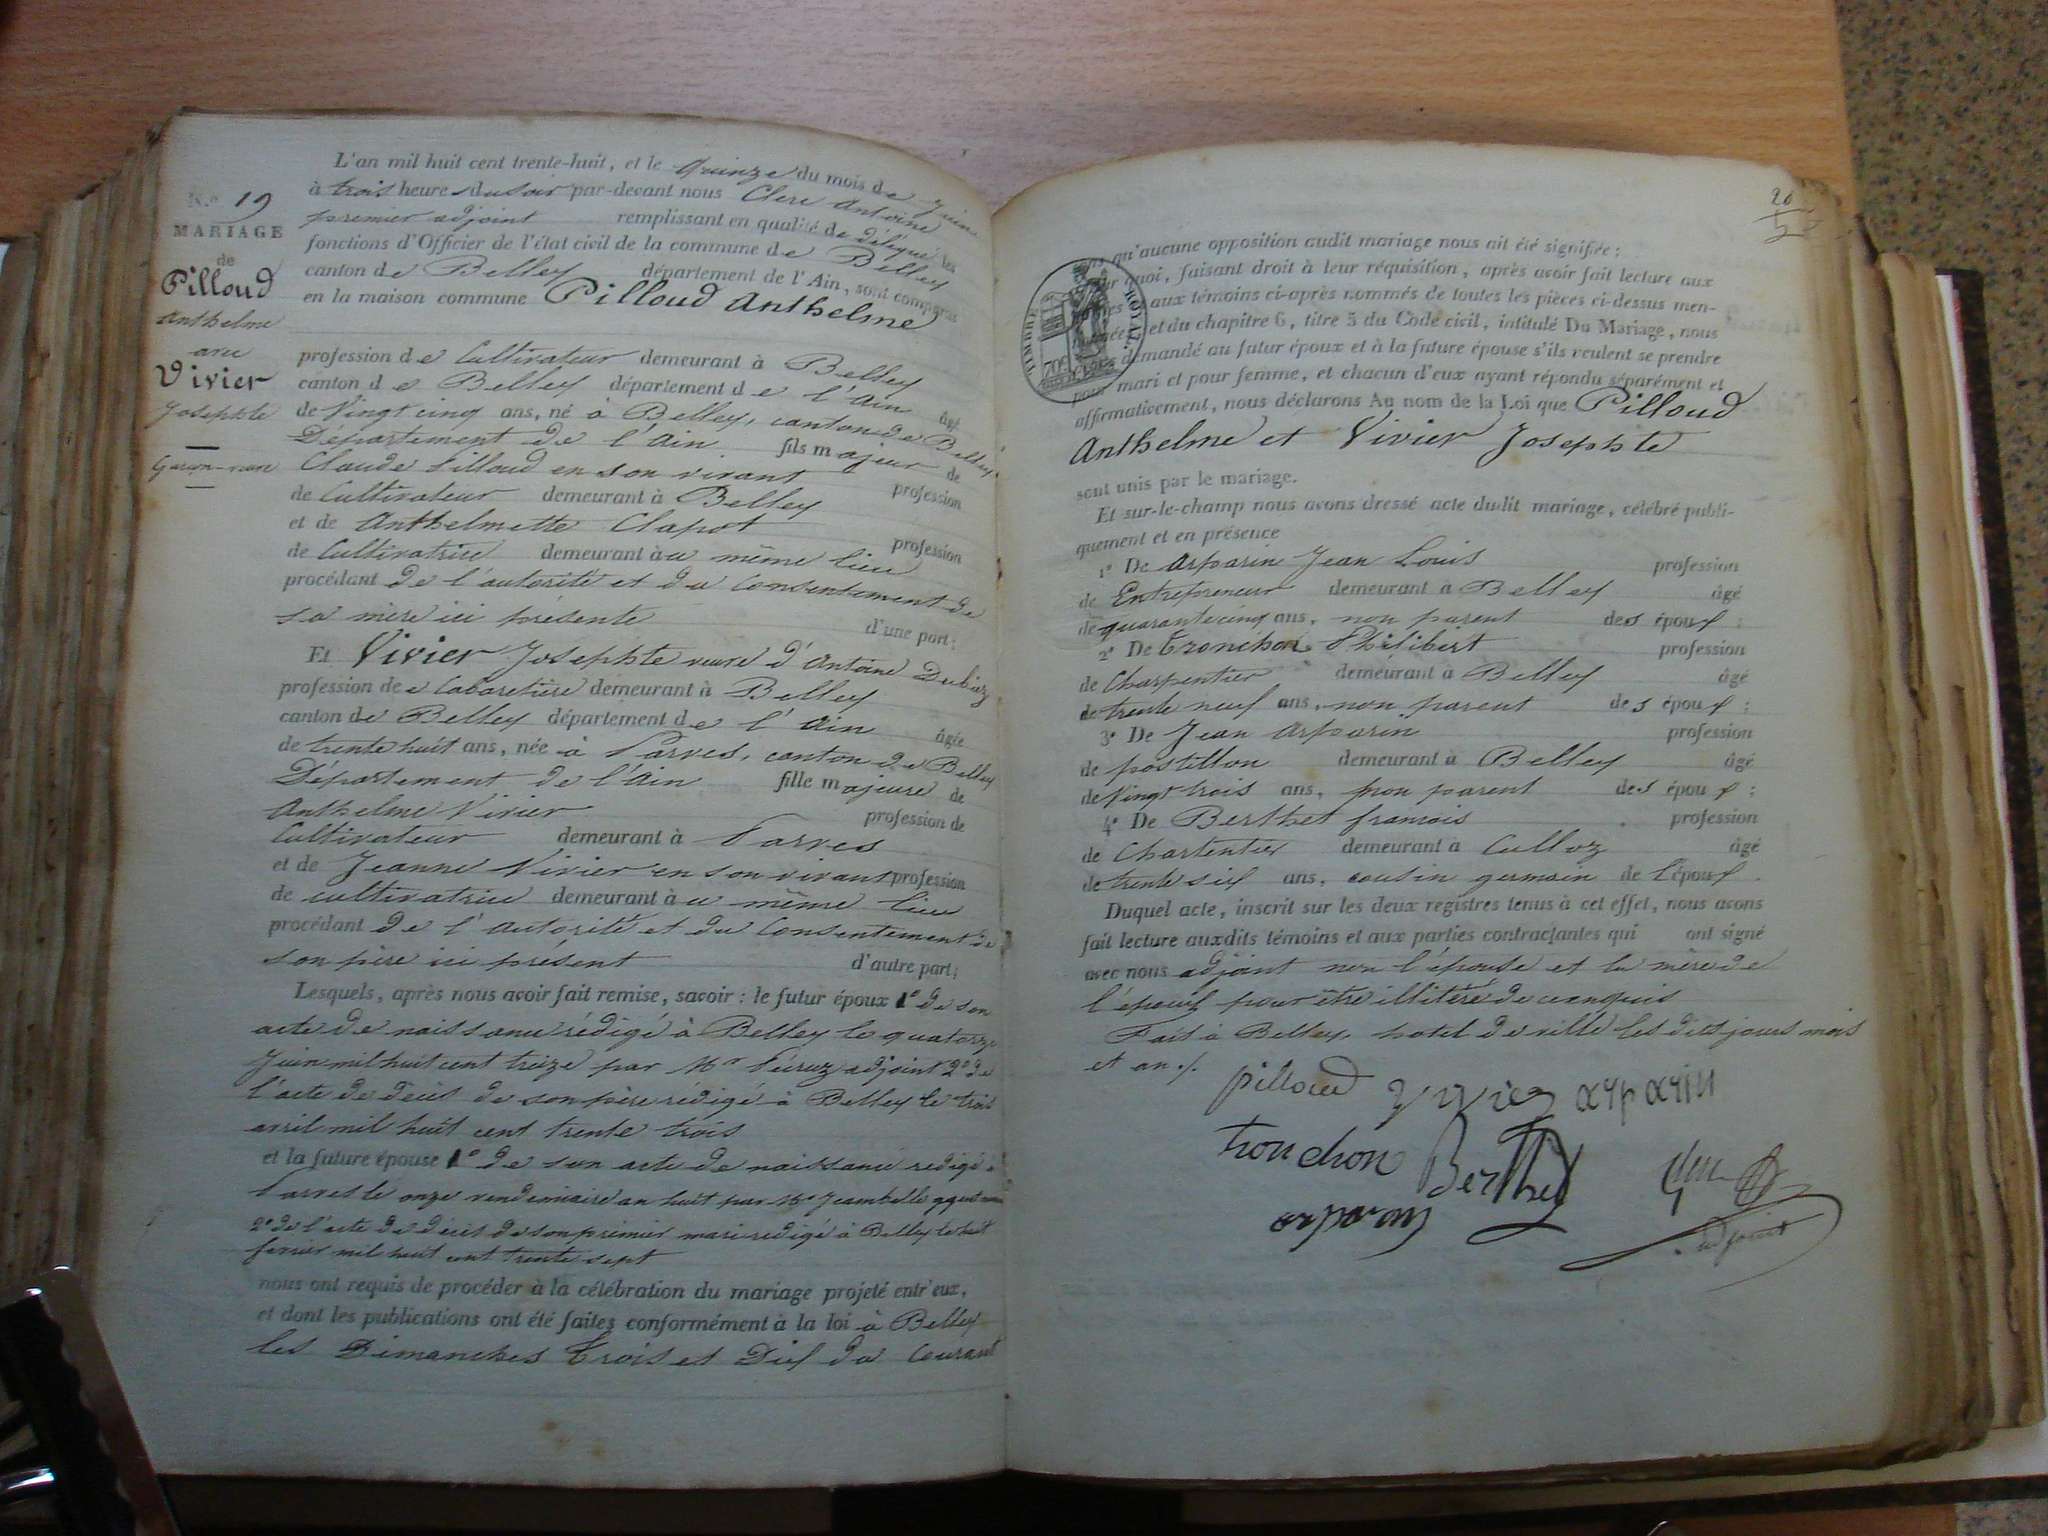 N.º 19
MARIAGE
de
Pilloud
Anthelme
avec
Vivier
Josephte
Garçon-veuve
L'an mil huit cent trente-huit, et le Quinze du mois de Juin
à trois heures du soir par-devant nous Clerc Antoine
premier adjoint remplissant en qualité de délégué les
fonctions d'Officier de l'état civil de la commune de Belley
canton de Belley département de l'Ain, sont comparus
en la maison commune Pilloud Anthelme
profession de Cultivateur demeurant à Belley
canton de Belley département de l'Ain âgé
de Vingt cinq ans, né à Belley, canton de Belley
Département de l'Ain fils majeur de
Claude Pilloud en son vivant profession
de Cultivateur demeurant à Belley
et de Anthelmette Clapot profession
de Cultivatrice demeurant au même lieu
procédant de l'autorité et du Consentement de
sa mère ici présente d'une part;
Et Vivier Josephte veuve d'Antoine Dubiez
profession de Cabaretière demeurant à Belley
canton de Belley département de l'Ain âgée
de trente huit ans, née à Parves, canton de Belley
Département de l'Ain fille majeure de
Anthelme Vivier profession de
Cultivateur demeurant à Parves
et de Jeanne Vivier en son vivant profession
de cultivatrice demeurant au même lieu
procédant de l'autorité et du Consentement de
son père ici présent d'autre part;
Lesquels, après nous avoir fait remise, savoir : le futur époux 1º de son
acte de naissance rédigé à Belley le quatorze
Juin mil huit cent treize par Mr adjoint 2º de
l'acte de décès de son père rédigé à Belley le trois
avril mil huit cent trente trois
et la future épouse 1º de son acte de naissance rédigé à
Parves le onze vendemiaire an huit par Mr Jeambelle agent
2º de l'acte de décès de son premier mari redigé à Belley le huit
fevrier mil huit cent trente sept
nous ont requis de procéder à la célébration du mariage projeté entr'eux,
et dont les publications ont été faites conformément à la loi à Belley
les Dimanches Trois et Dix du Courant
20
sans qu'aucune opposition audit mariage nous ait été signifiée;
Sur quoi, faisant droit à leur réquisition, après avoir fait lecture aux
parties aux témoins ci-après nommés de toutes les pièces ci-dessus men-
tionnées et du chapitre 6, titre 5 du Code civil, intitulé Du Mariage, nous
avons demandé au futur époux et à la future épouse s'ils veulent se prendre
pour mari et pour femme, et chacun d'eux ayant répondu séparément et
affirmativement, nous déclarons Au nom de la Loi que Pilloud
Anthelme et Vivier Josephte
sont unis par le mariage.
Et sur-le-champ nous avons dressé acte dudit mariage, célébré publi-
quement et en présence
1º De Arparin Jean Louis profession
de Entrepreneur demeurant à Belley âgé
de quarante cinq ans, non parent des époux;
2º De Tronchon Philibert profession
de Charpentier demeurant à Belley âgé
de trente neuf ans, non parent des époux;
3º De Jean Arparin profession
de postillon demeurant à Belley âgé
de Vingt trois ans, non parent des époux;
4º De Berthet francois profession
de Chartentier demeurant à Culloz âgé
de trente six ans, cousin germain de l'époux.
Duquel acte, inscrit sur les deux registres tenus à cet effet, nous avons
fait lecture auxdits témoins et aux parties contractantes qui ont signé
avec nous adjoint non l'épouse et la mère de
l'époux pour être illitéré de ce enquis
Fait à Belley, hotel de ville les dits jours mois
et an ./.
TIMBRE ROYAL
pilloud vivier arparin
tronchon Berthet
arparin adjoint